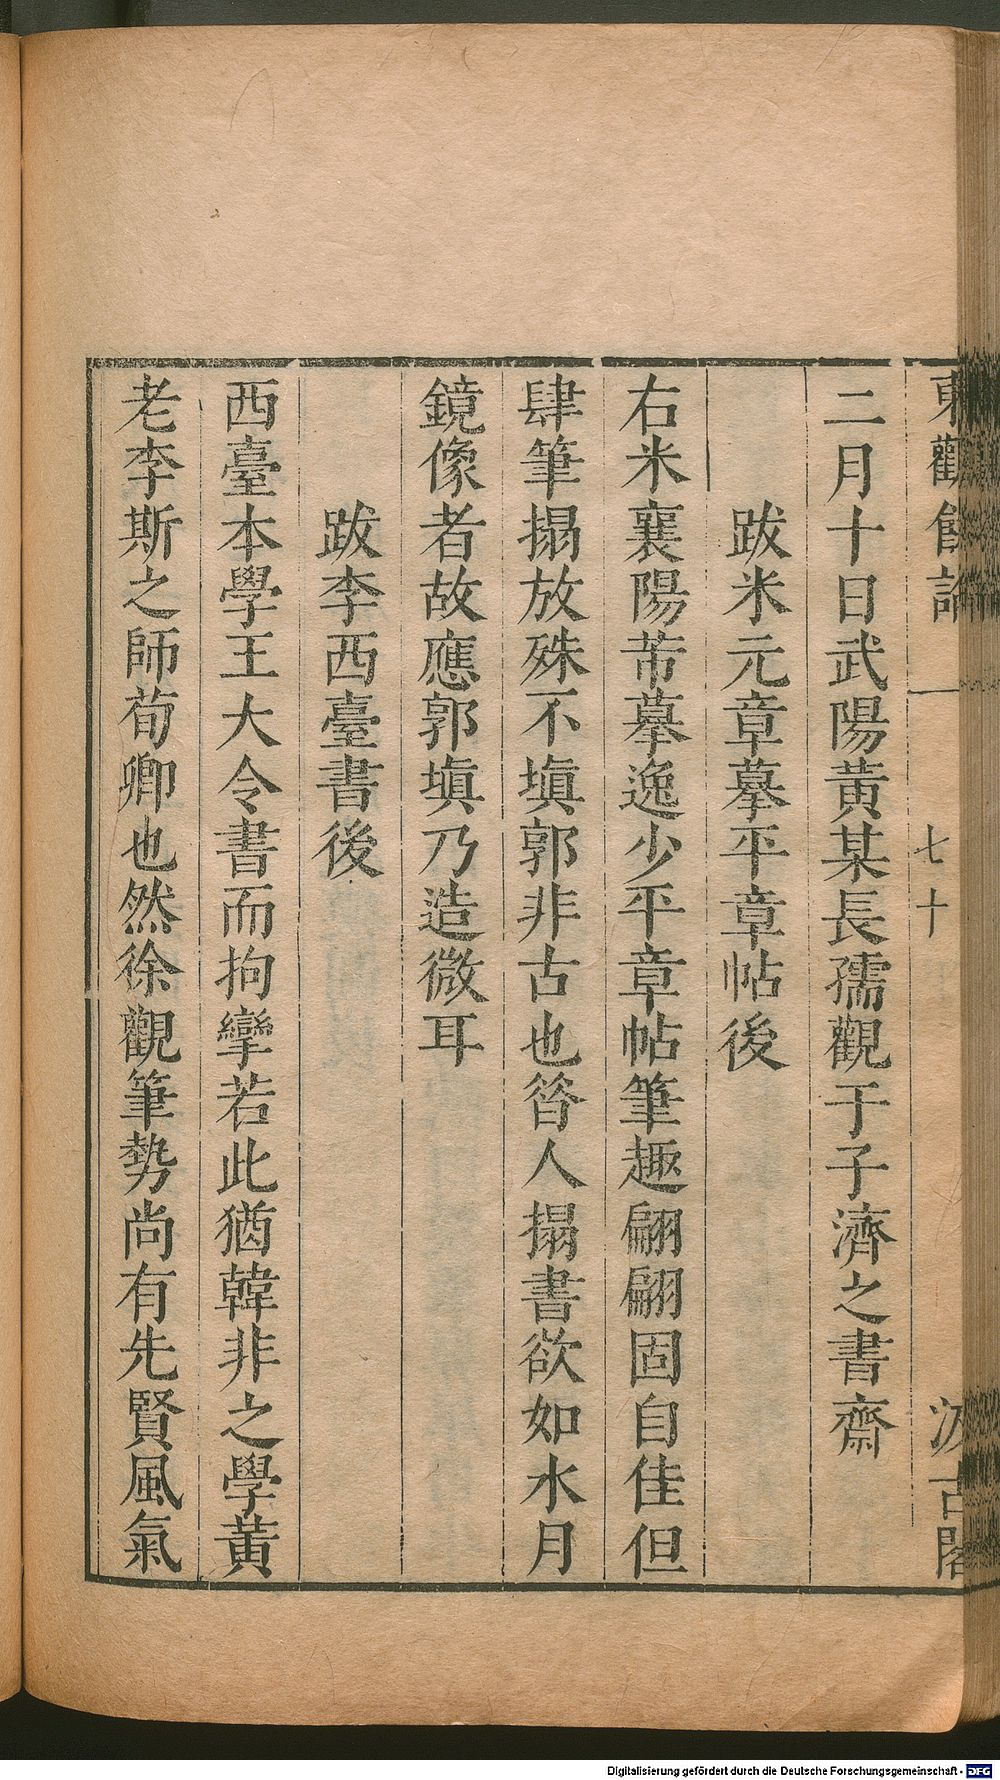 東觀餘論
七十
汲古閣
二月十日武陽黃某長孺觀于子濟之書齋
跋米元章摹平章帖後
右米襄陽芾摹逸少平章帖筆趣翩翩固自佳但
肆筆搨放殊不塡郭非古也昝人搨書欲如水月
鏡像者故應郭塡乃造微耳
跋李西臺書後
西臺本學王大令書而拘攣若此猶韓非之學黃
老李斯之師荀卿也然徐觀筆勢尚有先賢風氣
Digitalisierung gefördert durch die Deutsche Forschungsgemeinschaft - DFG